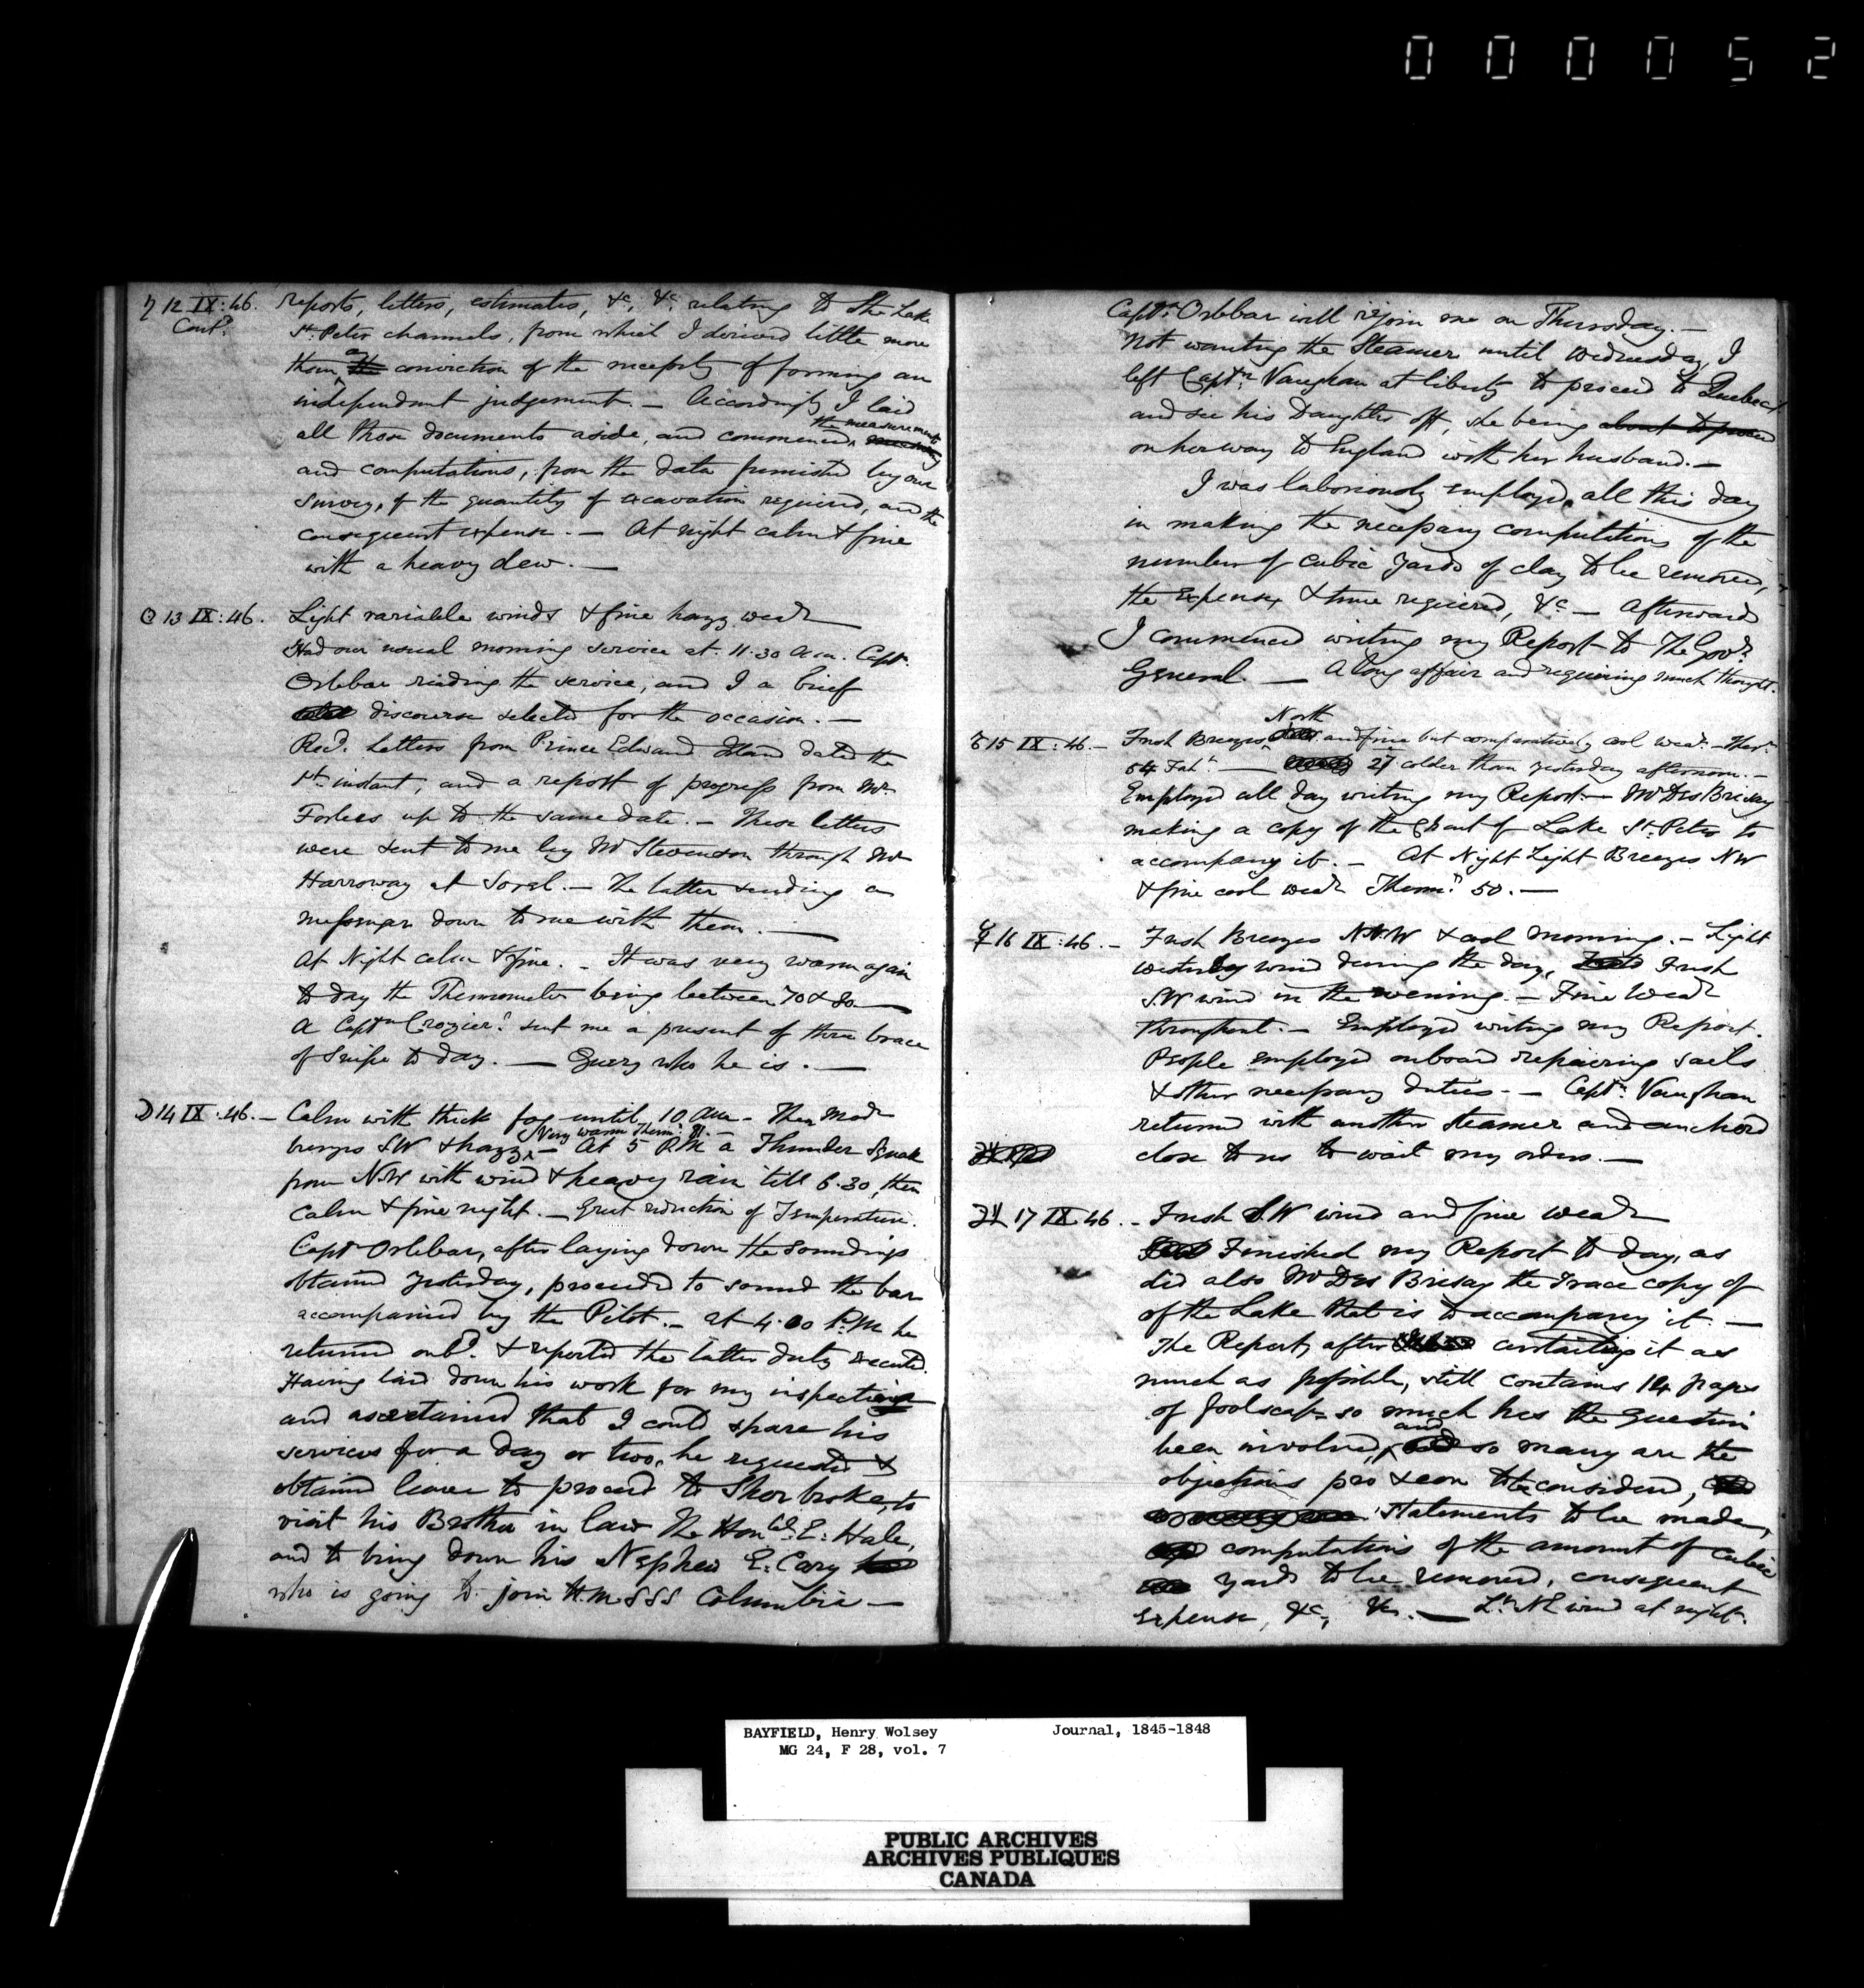 000052
♄ 12 IX:46. reports, letters, estimates, &c, &c relating to the Lake
Cont.d St. Peter channels, from which I derived little more
than a the conviction of the necessity of forming an
independent judgement. — Accordingly I laid
all those documents aside, and commenced the measurements
and computations, from the data furnished by our
survey, of the quantity of excavation required, and the
consequent expense. — At night calm & fine
with a heavy dew. —
☉ 13 IX:46. Light variable winds & fine hazy wear
Had our usual morning service at 11.30 a.m. Capt.
Orlebar reading the service, and I a brief
discourse selected for the occasion. —
Recd. Letters from Prince Edward Island dated the
1st. instant, and a report of progress from Mr.
Forbes up to the same date. — These letters
were sent to me by Mr Stevenson through Mr
Harroway at Sorel. — The latter sending a
messenger down to me with them. —
At Night calm & fine. — It was very warm again
to day the Thermometer being between 70 & 80 —
A Captn Crozier? sent me a present of three brace
of Snipe to day. — Query who he is. —
☽ 14 IX:46. — Calm with thick fog until 10 AM — Then Modr
breezes SW & hazy — Very warm Therm: 81. — At 5 P.M. a Thunder Squall
from N.W with wind & heavy rain till 6.30, then
Calm & fine night. — Great reduction of Temperature.
Capt Orlebar, after laying down the soundings
obtained yesterday, proceeded to sound the bar
accompanied by the Pilot. — at 4.00 P.M. he
returned onbd. & reported the latter duty executed.
Having laid down his work for my inspection
and ascertained that I could spare his
services for a day or two, he requested &
obtained leave to proceed to Sherbroke, to
visit his Brother in law the Honble. E: Hale,
and to bring down his Nephew E: Cary
who is going to join H.M.S.S.S Columbia —
Captn. Orlebar will rejoin me on Thursday. —
Not wanting the Steamer until Wednesday, I
left Captn. Vaughan at liberty to proceed to Quebec
and see his Daughter off, she being about to proceed
on her way to England with her husband. —
I was laboriously employed all this day
in making the necessary computations of the
number of cubic yards of clay to be removed,
the expense, & time required, &c — Afterward
I commenced writing my Report to The Govr.
General. — A long affair and requiring much thought.
♂ 15 IX:46. — Fresh Breezes North and fine but comparatively cool wear. — Therr.
54 Faht. — 27 colder than yesterday afternoon. —
Employed all day writing my Report. — Mr Des Brisay
making a copy of the Chart of Lake St. Peter to
accompany it. — At Night Light Breezes NW
& fine cool wear Thermr. 50. —
☿ 16 IX:46. — Fresh Breezes NNW & cool morning. — Light
westerly wind during the day, Fresh
S.W wind in the evening. — Fine Wear
throughout. — Employed writing my Report.
People employed onboard repairing sails
& other necessary duties. — Captn. Vaughan
returned with another Steamer and anchored
close to us to wait my orders. —
♃ 17 IX 46. — Fresh S.W wind and fine wear
Finished my Report to day, as
did also Mr Des Brisay the trace copy of
of the Lake that is to accompany it. —
The Report, after curtailing it as
much as possible, still contains 14 pages
of foolscap so much has the question
been involved, and so many are the
objections pro & con to be considered,
statements to be made,
computations of the amount of cubic
yards to be removed, consequent
expense, &c, &c. — Lt. NE wind at night.
BAYFIELD, Henry Wolsey Journal, 1845-1848
MG 24, F 28, vol. 7
PUBLIC ARCHIVES
ARCHIVES PUBLIQUES
CANADA